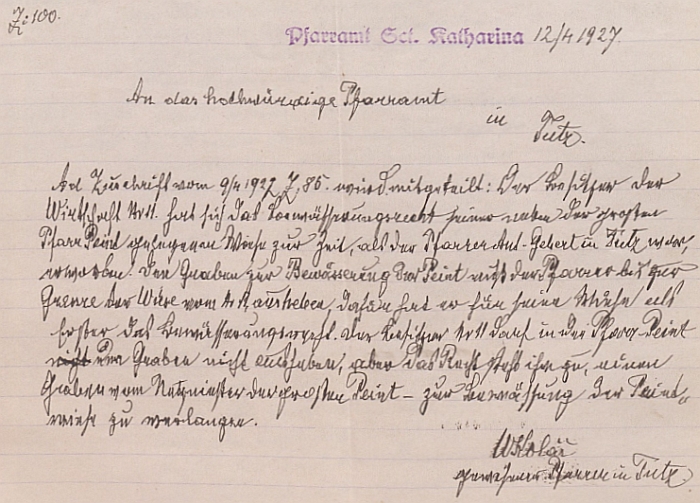 Z: 100.
Pfarramt Sct. Katharina 12/4 1927.
An das hochwürdige Pfarramt
in
Tutz.
Ad Zuschrift vom 9/4 1927, Z, 85. wird mitgeteilt: Der Besitzer der
Wirtschaft Nr 11. hat sich das Bewässerungsrecht seiner neben der großen
Pfarr Peint gelegenen Wiese zur Zeit, als der Pfarrer Ant. Gebert in Tutz war
erworben. Den Graben zur Bewässerung der Peint muß der Pfarrer bis zur
Grenze der Wiese vom Nr 11 ausheben, dafür hat er für seine Wiese als
Erster das Bewässerungsrecht. Der Besitzer Nr 11 darf in der Pfarr-Peint
den Graben nicht ausheben, aber das Recht steht ihm zu, einen
Graben vom der großen Peint – zur Bewässerung der Peint,
wiese zu verlangen.
gewesener Pfarrer in Tutz.